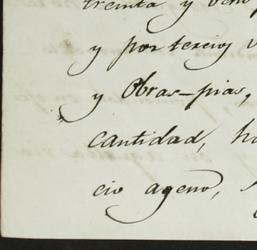 treinta y ocho
y por tercio
y Obras-pias,
cantidad,
cio ageno,